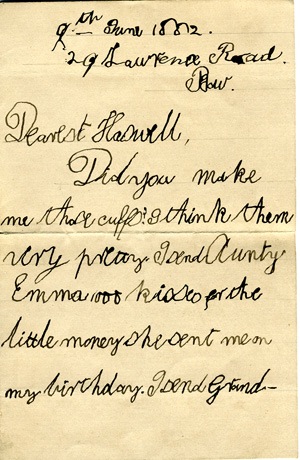 9th June 1882.
29 Lawrence Road.
Bow.
Dearest Haswell,
Did you make
me those cuffs? I think them
very pretty. I send Aunty
Emma 1000 kisses for the
little money she sent me on
my birthday. I send Grand-